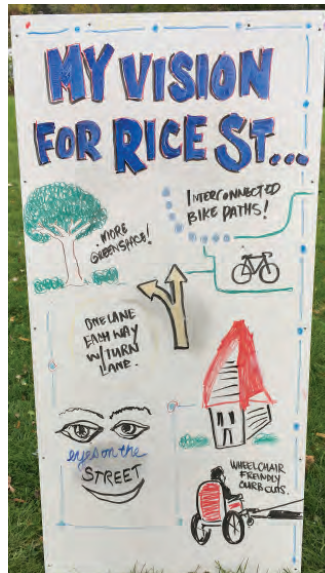 MY VISION
FOR RICE ST...
MORE
GREENSPACE!
INTERCONNECTED
BIKE PATHS!
ONE LANE
EACH WAY
W/TURN
LANE.
eyes on the
STREET
WHEELCHAIR
FRIENDLY
CURB CUTS.